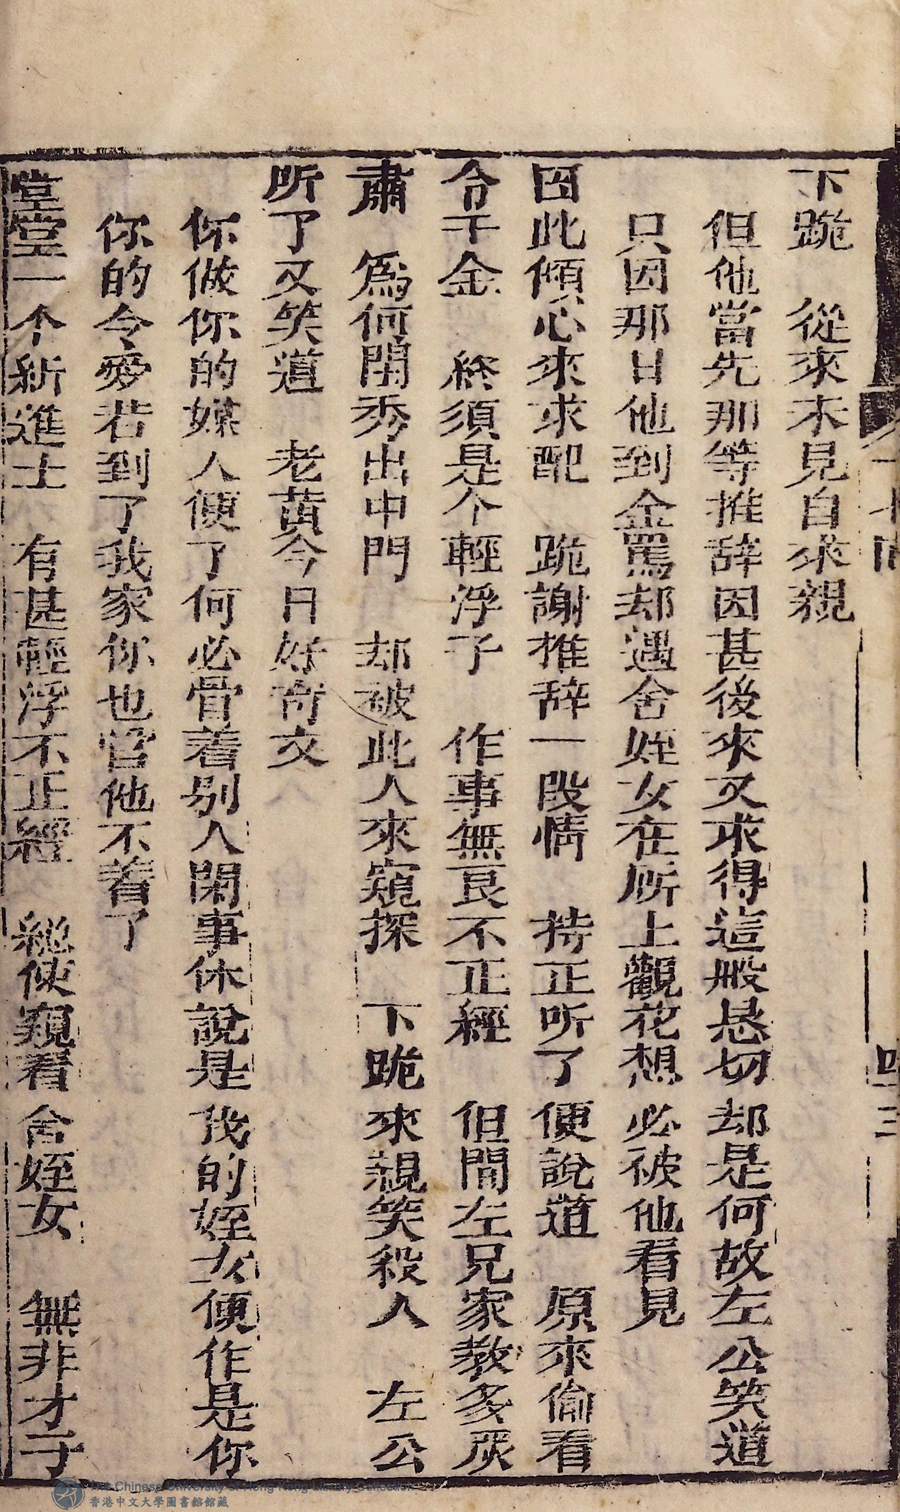 下跪　從來未見自求親
但他當先那等推辞因甚後來又求得這般恳切却是何故左公笑道
只因那日他到金罵却遇舍姪女在厛上觀花想必被他看見
因此傾心來求配　跪謝推辞一段情　持正听了便說道　原來偷看
令千金　終須是个輕浮子　作事無良不正經　但聞左兄家教多嚴
肅　爲何閨秀出中門　却被此人來窺探　下跪來親笑殺人　左公
听了又笑道　老黃今日好奇文
你做你的媒人便了何必骨着别人閑事休說是我的姪女便作是你
你的令愛若到了我家你也官他不着了
堂堂一个新進士　有甚輕浮不正經　縱使窺看舍姪女　無非才子
十七回
四三
The Chinese University of Hong Kong Library Collection
香港中文大學圖書館館藏